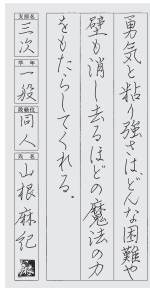 勇気と粘り強さは、どんな困難や
壁も消し去るほどの魔法の力
をもたらしてくれる。
支部名 三次
学年 一般
段級位 同人
氏名 山根麻記